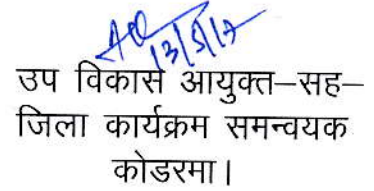 13/5/17
उप विकास आयुक्त–सह–
जिला कार्यक्रम समन्वयक
कोडरमा।